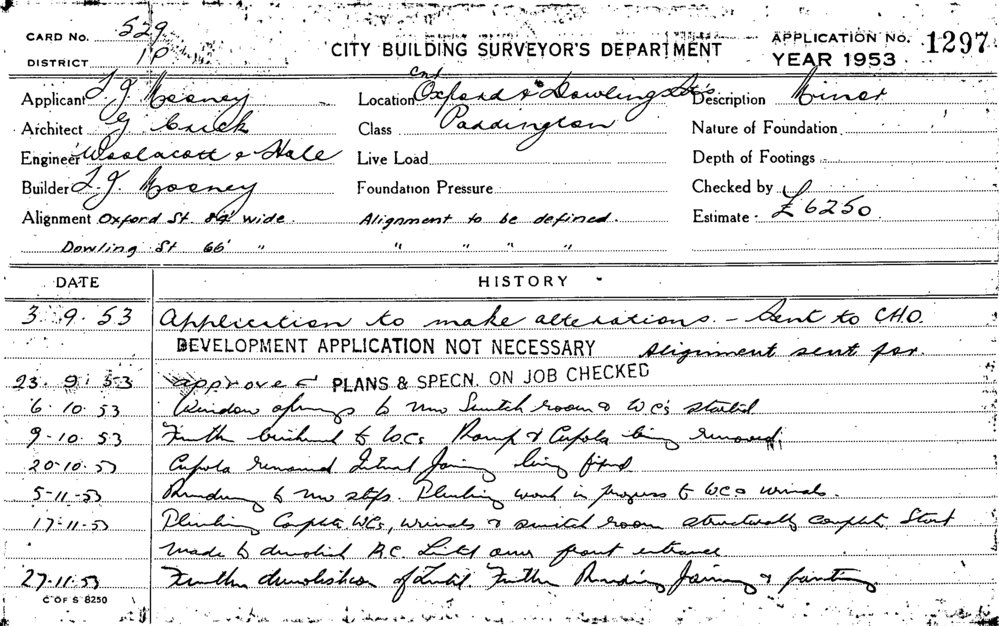 CARD No. 529
DISTRICT 1P
CITY BUILDING SURVEYOR'S DEPARTMENT
APPLICATION No. 1297
YEAR 1953
Applicant L J Mooney
Location Cnr Oxford & Dowling Sts
Description Minor
Architect G Crick
Class Paddington
Nature of Foundation
Engineer Woolacott & Hale
Live Load
Depth of Footings
Builder L. J. Mooney
Foundation Pressure
Checked by
Alignment Oxford St 84' wide. Alignment to be defined.
Estimate £6250
Dowling St 66' " " " " "
DATE HISTORY
3.9.53 Application to make alterations. - Sent to C.H.O.
DEVELOPMENT APPLICATION NOT NECESSARY Alignment sent for.
23.9.53 approved PLANS & SPECN. ON JOB CHECKED
6.10.53 Window openings to new Switch room & WCs started
9-10.53 Further brickwork to WCs & Cupola being removed
20-10.53 Cupola removed Joinery being fixed
5-11-53 Rendering to new steps. Plumbing work in progress to WCs urinals.
17-11-53 Plumbing Complete WCs, urinals & switch room structurally complete. Start
made to demolish R.C. Lintel over front entrance
27-11-53 Further demolition of Lintel. Further Rendering Joinery & painting
C OF S 8250